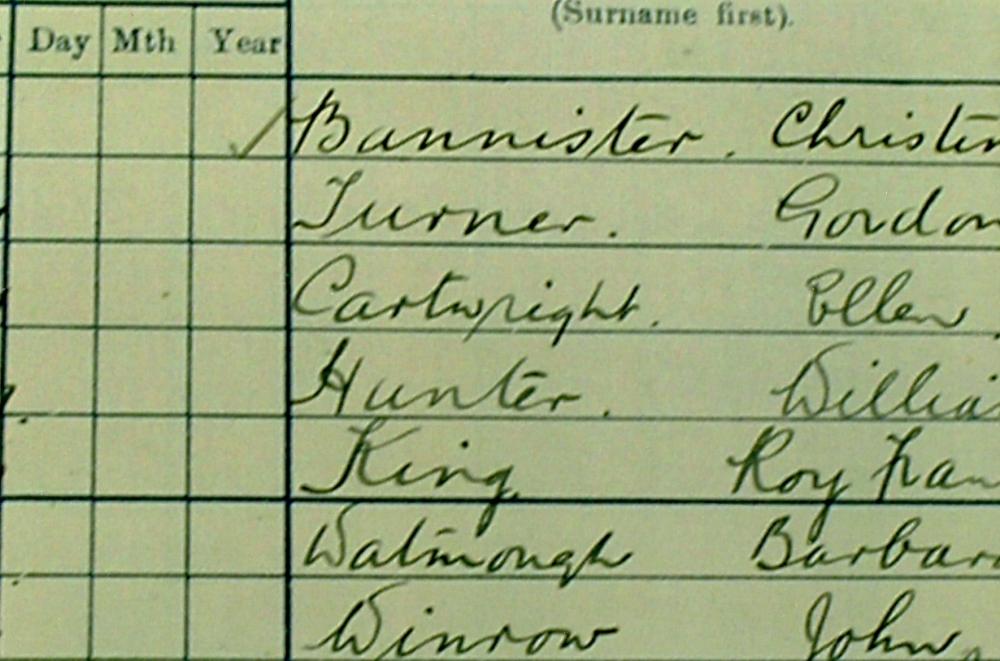 (Surname first).
Day Mth Year
Bannister. Christin
Turner. Gordon
Cartwright. Ellen
Hunter. Willia
King Roy Fran
Watmough Barbara
Winrow John